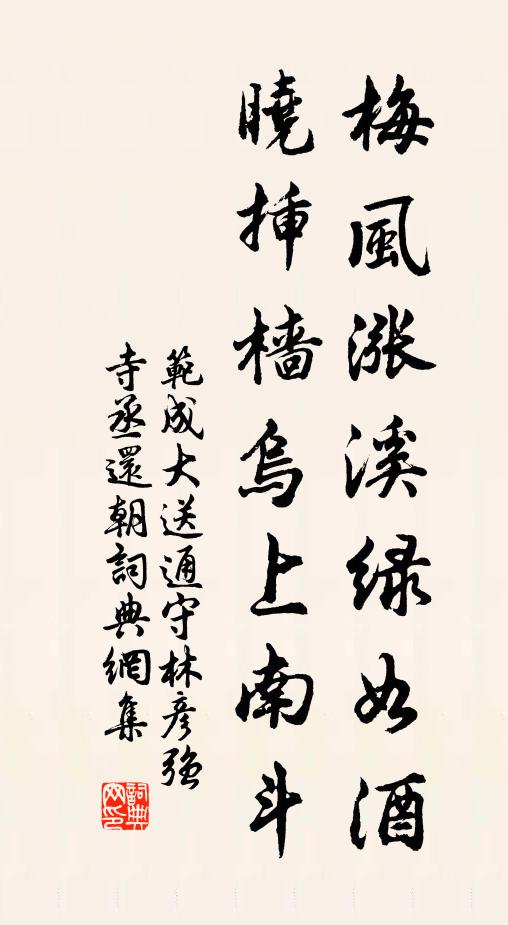 梅風漲溪緑如酒
曉挿檣烏上南斗
範成大送通守林彥強
寺丞還朝詞典網集
詞典
网印